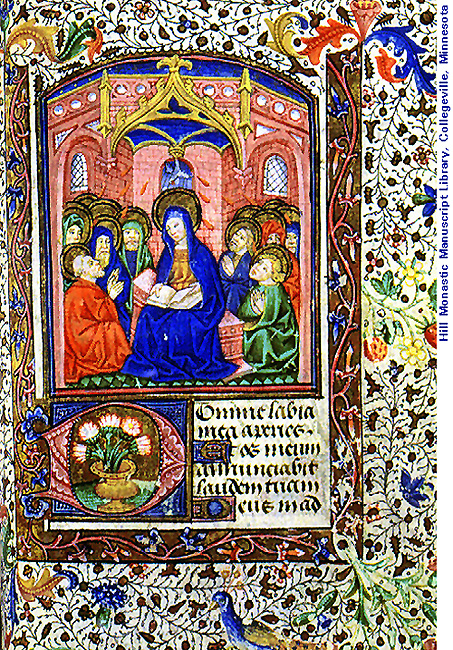 Domine labia
mea aperies.
Et os meum
annunciabit
laudem tuam
Deus in ad
Hill Monastic Manuscript Library, Collegeville, Minnesota